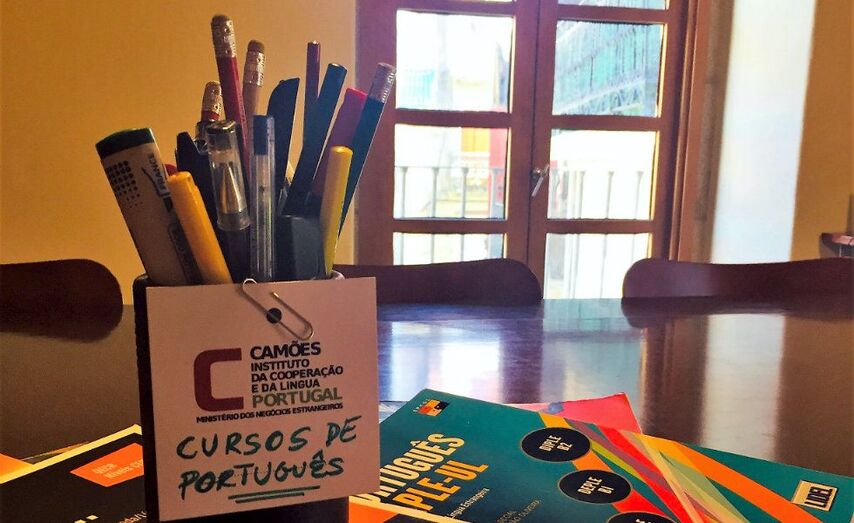 FRANCE
CAMÕES
INSTITUTO
DA COOPERAÇÃO
E DA LÍNGUA
PORTUGAL
MINISTÉRIO DOS NEGÓCIOS ESTRANGEIROS
CURSOS DE
PORTUGUÊS
PORTUGUÊS
PLE-UL
Língua Estrangeira
DIPLE B2
DEPLE B1
LIDEL
QECR